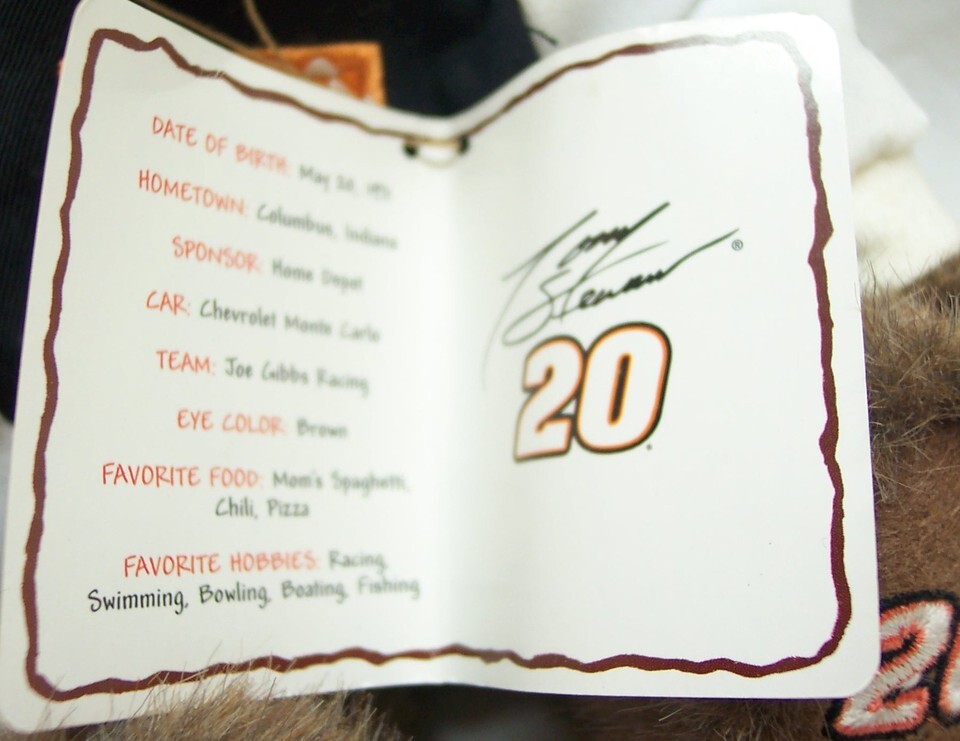 DATE OF BIRTH: May 20,
HOMETOWN: Columbus, Indiana
SPONSOR: Home Depot
CAR: Chevrolet Monte Carlo
TEAM: Joe Gibbs Racing
EYE COLOR: Brown
FAVORITE FOOD: Mom's Spaghetti,
Chili, Pizza
FAVORITE HOBBIES: Racing,
Swimming, Bowling, Boating, Fishing
Tony
Stewart ®
20